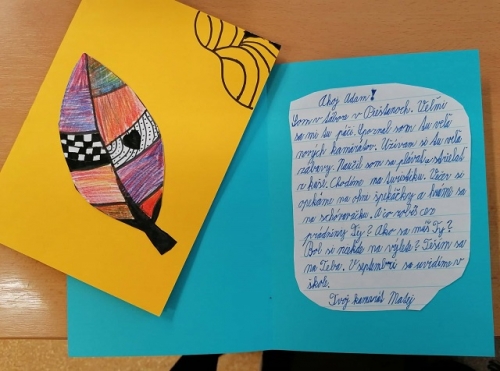 Ahoj Adam!
Som v tábore v Piešťanoch. Veľmi
sa mi tu páči. Spoznal som tu veľa
nových kamarátov. Užívam si tu veľa
zábavy. Naučil som sa plávať a strielať
z kuše. Chodíme na turistiku. Večer si
opekáme na ohni špekáčky a hráme sa
na schovávačku. A čo robíš cez
prázdniny Ty? Ako sa máš Ty?
Bol si niekde na výlete? Teším sa
na Teba. V septembri sa uvidíme v
škole.
Tvoj kamarát Matej